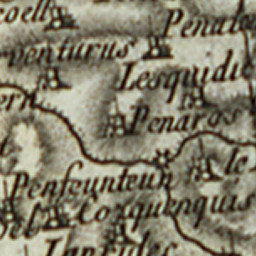 coell
Penal
penturus
Lesquidic
ern
Penaros
le
Penfeunteun
Cozquenquis
del